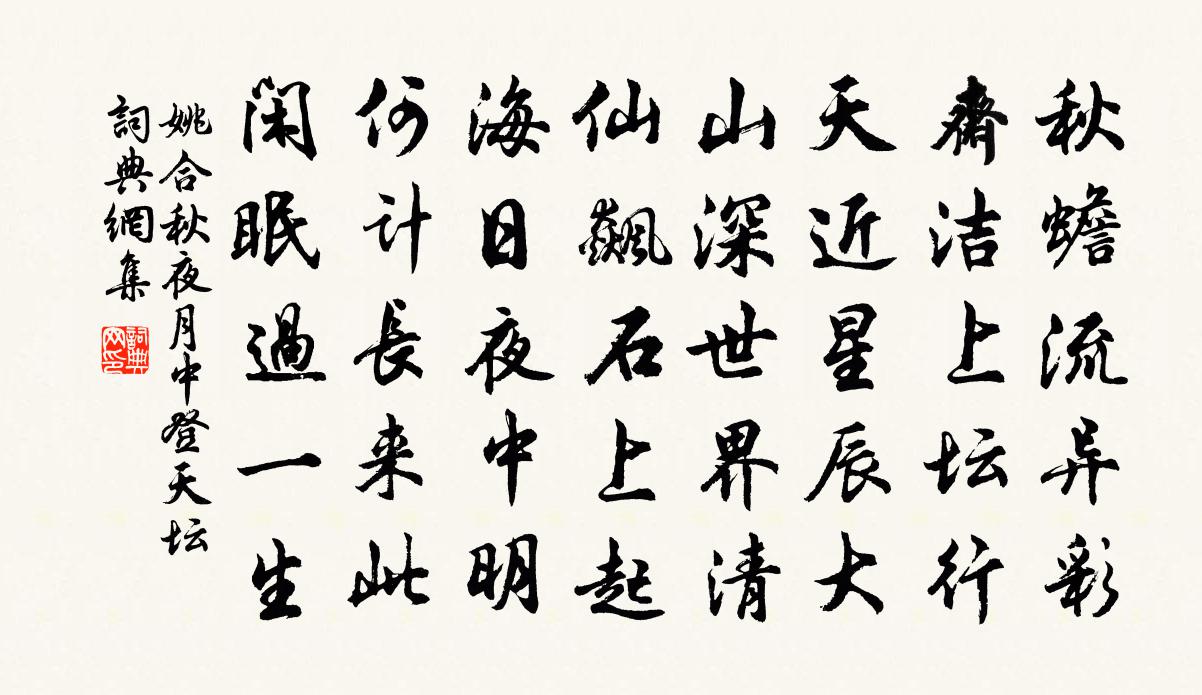 秋蟾流异彩
齋洁上坛行
天近星辰大
山深世界清
仙飆石上起
海日夜中明
何计長来此
闲眠過一生
姚合秋夜月中登天坛
詞典網集
詞典网印